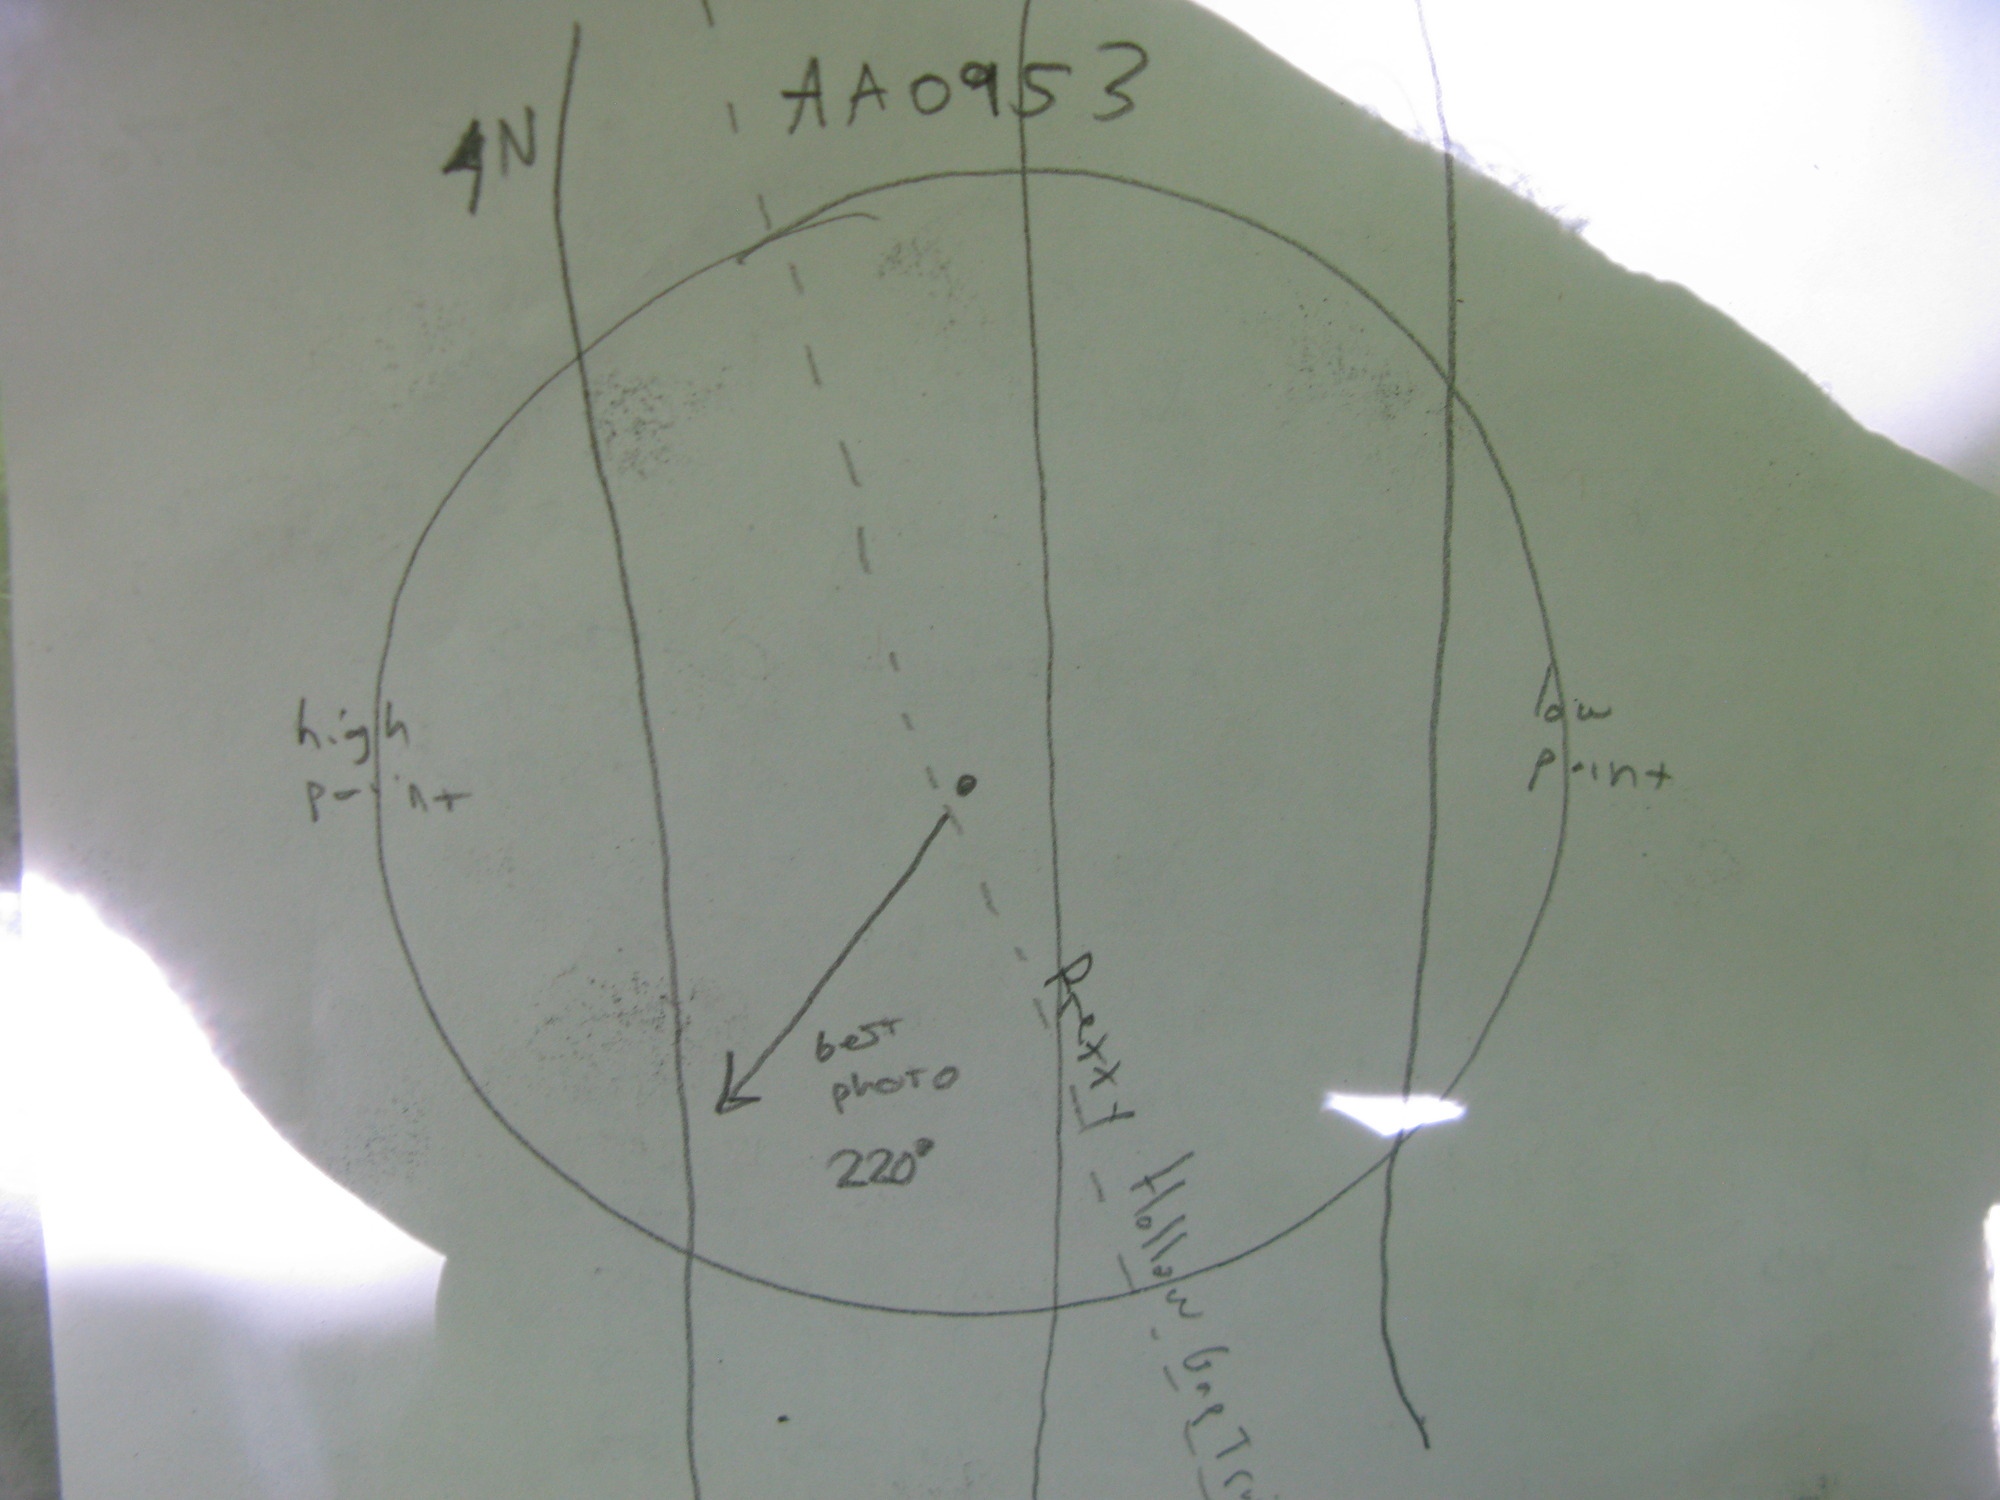 AA0953
N
high
point
low
point
best
photo
220°
Hollow Gap